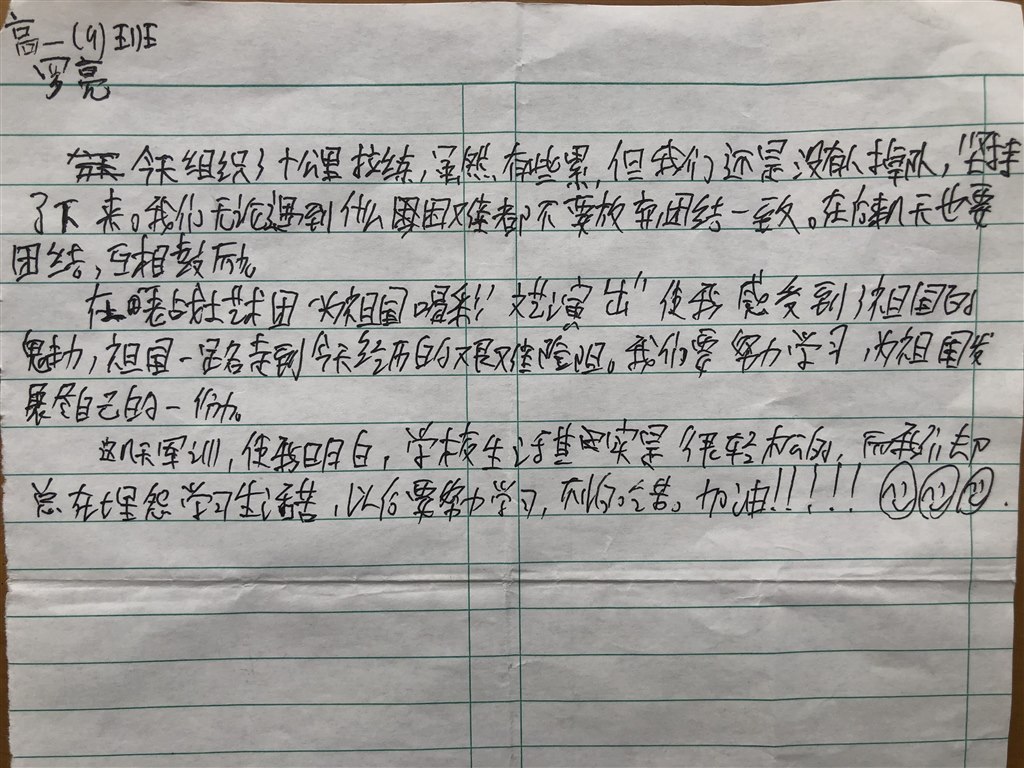 高一(9)班
罗亮
今天组织了十公里拉练,虽然有些累,但我们还是没有人掉队,坚持
了下来。我们无论遇到什么困难都不要放弃,团结一致。在后几天也要
团结,互相鼓励
在战士艺术团"为祖国喝彩"文艺演出"使我感受到了祖国的
魅力,祖国一路走到今天经历的艰难险阻。我们要努力学习,为祖国发
展尽自己的一份力。
这几天军训,使我明白,学校生活其实是很轻松的,而我们却
总在埋怨学习生活苦,以后要努力学习,不怕吃苦。加油!!!!!